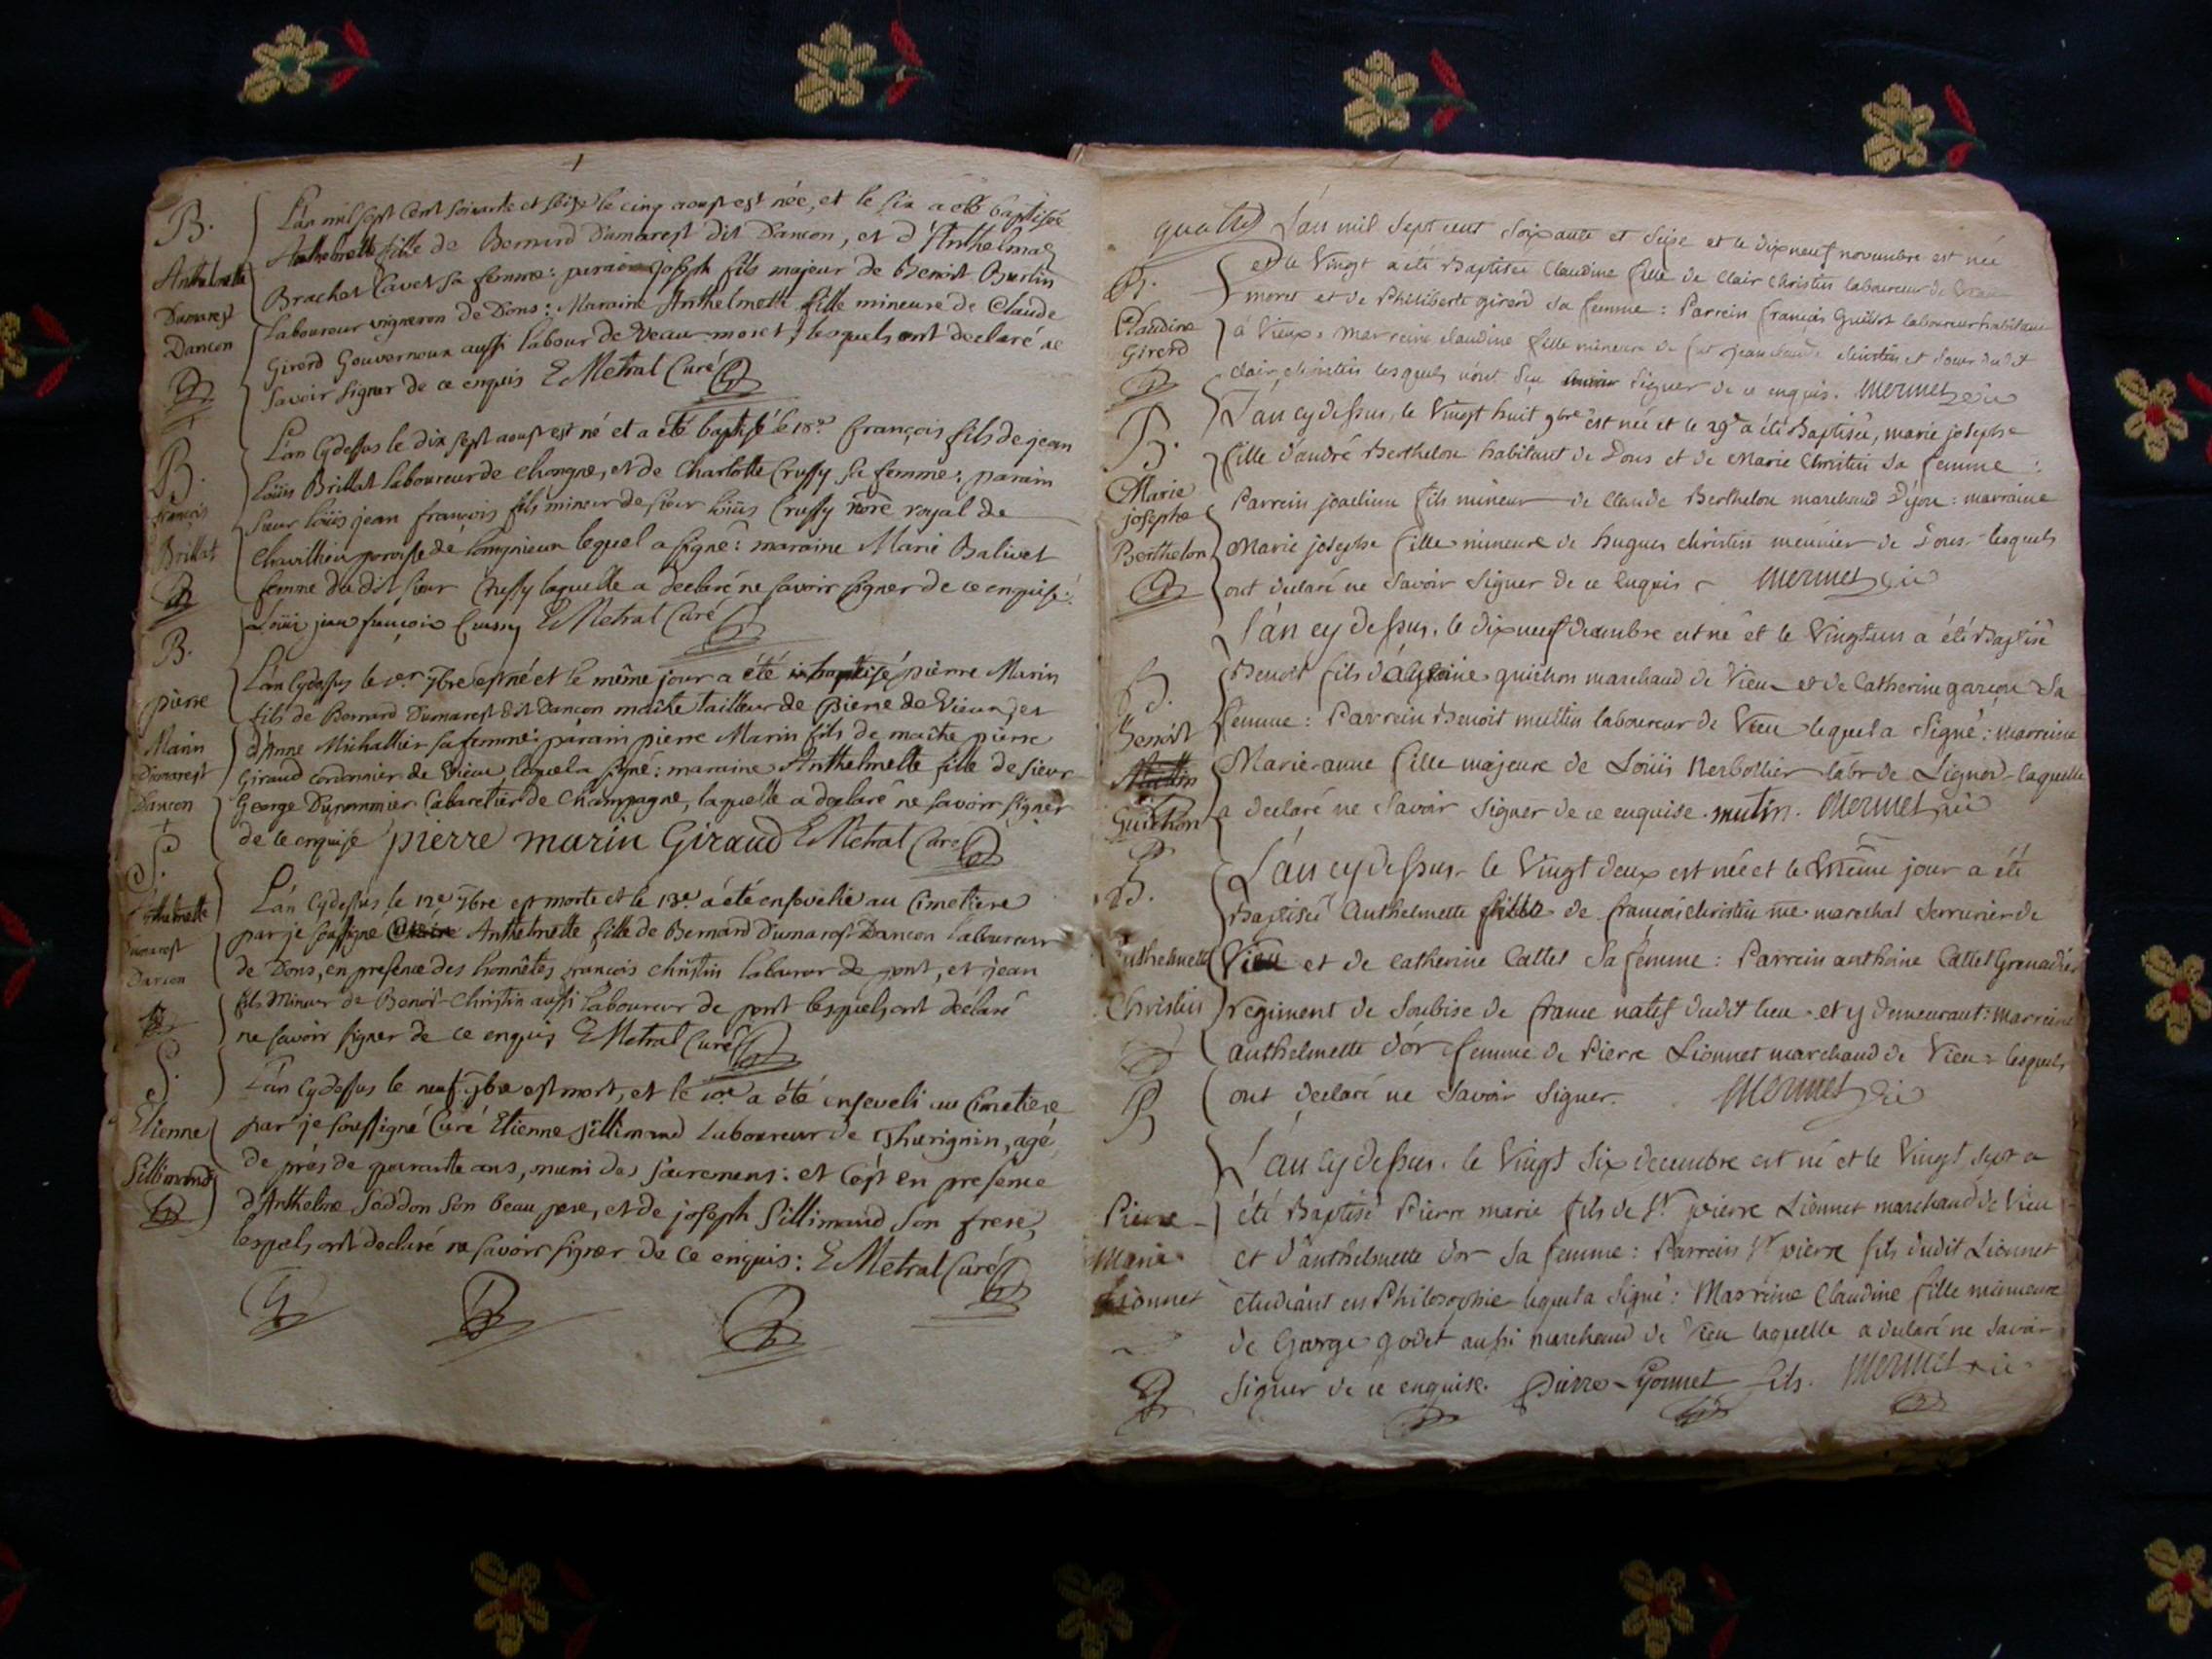 B.
Anthelmette
Dumarest
Dancon
L'an mil sept cent soixante et seize le cinq aoust est née, et le six a été baptisée
Anthelmette fille de Bernard Dumarest dit Dancon, et d'Anthelmaz
Brachet Cavet sa femme: parain joseph fils majeur de Benoit Burlin
Laboureur vigneron de Dons: Maraine Anthelmette fille mineure de Claude
Girerd Gouvernoux aussi labour de Veau moret, lesquels ont declaré ne
savoir signer de ce enquis E Metral Curé
B.
françois
Brillat
L'an cy dessus le dix sept aoust est né et a été baptisé le 18e françois fils de jean
loüis Brillat laboureur de chongne, et de Charlotte Crussy sa femme: parain
sieur loüis jean françois fils mineur de sieur loüis Crussy nore royal de
Chavillieu paroisse de lompnieux lequel a signé: maraine Marie Balivet
femme du dit sieur Crussy laquelle a declaré ne savoir signer de ce enquise:
Loüis jean françois Crussy E Metral Curé
B.
pierre
Marin
Dumarest
Dancon
L'an cy dessus le 1er 7bre est né et le même jour a été baptisé pierre Marin
fils de Bernard Dumarest dit Dancon maitre tailleur de pierre de Vieux, et
d'Anne Michallier sa femme: parain pierre Marin fils de maitre pierre
Giraud cordonnier de Vieu lequel a signé: maraine Anthelmette fille de sieur
George Dupommier Cabaretier de Champagne, laquelle a declaré ne savoir signer
de ce enquise pierre marin Giraud E Metral Curé
S.
Anthelmette
Dumarest
Dancon
L'an cy dessus le 12e 7bre est morte et le 13e a été ensevelie au Cimetiere
par je soussigné Anthelmette fille de Bernard Dumarest Dancon laboureur
de Dons, en presence des honnêtes françois christin labourer de pont, et jean
fils Mineur de Benoit Christin aussi laboureur de pont lesquels ont declaré
ne savoir signer de ce enquis E Metral Curé
S.
Etienne
Sillimand
L'an cy dessus le neuf 9bre est mort, et le 10e a été enseveli au Cimetiere
par je soussigné Curé Etienne Sillimand Laboureur de Thurignin, agé
de prés de quarante ans, muni des sacremens: et c'est en presence
d'Anthelme Seddon son beau pere, et de joseph Sillimand son frere,
lesquels ont declaré ne savoir signer de ce enquis: E Metral Curé
quatre
B.
Claudine
Girerd
L'an mil sept cent soixante et seise et le dix neuf novembre est née
et le Vingt a été Baptisée Claudine fille de Clair Christin laboureur de
moret et de Philiberte girerd sa femme: Parrein françois Guillot laboureur habitant
à Vieux: marreine claudine fille mineure de fut jean claude christin et soeur dudit
clair christin lesquels n'ont sçu signer de ce enquis. Mermet
B.
Marie
josephe
Berthelon
L'an cy dessus, le Vingt huit 9bre est née et le 29e a été Baptisée, marie josephe
fille d'andré Berthelon habitant de Dons et de Marie Christin sa femme:
Parrein joachim fils mineur de Claude Berthelon marchand d'yon: marraine
Marie josephe fille mineure de hugues christin meunier de Dons lesquels
ont declaré ne savoir signer de ce enquis Mermet
B.
Benoit
Guichon
L'an cy dessus. le dix neuf decembre est né et le Vingt un a été Baptisé
Benoit fils d'antoine guichon marchand de Vieu et de Catherine garçon sa
femme: Parrein Benoit muttin laboureur de Vieu lequel a signé: marreine
Marie-anne fille majeure de Loüis Nerbollier labr de Lignod laquelle
a declaré ne savoir signer de ce enquise. mutin. Mermet
B.
Anthelmette
Christin
L'an cy dessus. le Vingt deux est née et le même jour a été
Baptisée Anthelmette fille de françois christin me marechal serrurier de
Vieu et de catherine Callet sa femme: Parrein anthoine Callet Grenadier
regiment de Soubise de france natif dudit lieu et y demeurant: marreine
anthelmette d'or femme de Pierre Lionnet marchand de Vieu: lesquels
ont declaré ne savoir signer. Mermet
B
Pierre
Marie
Lionnet
L'an cy dessus. le Vingt six decembre est né et le Vingt sept a
été Baptisé Pierre marie fils de Sr pierre Lionnet marchand de Vieu
et d'anthelmette d'or sa femme: Parrein Sr pierre fils dudit Lionnet
etudiant en Philosophie lequel a signé: Marreine Claudine fille mineure
de George godet aussi marchand de Vieu laquelle a declaré ne savoir
signer de ce enquise. Pierre Lyonnet fils. Mermet